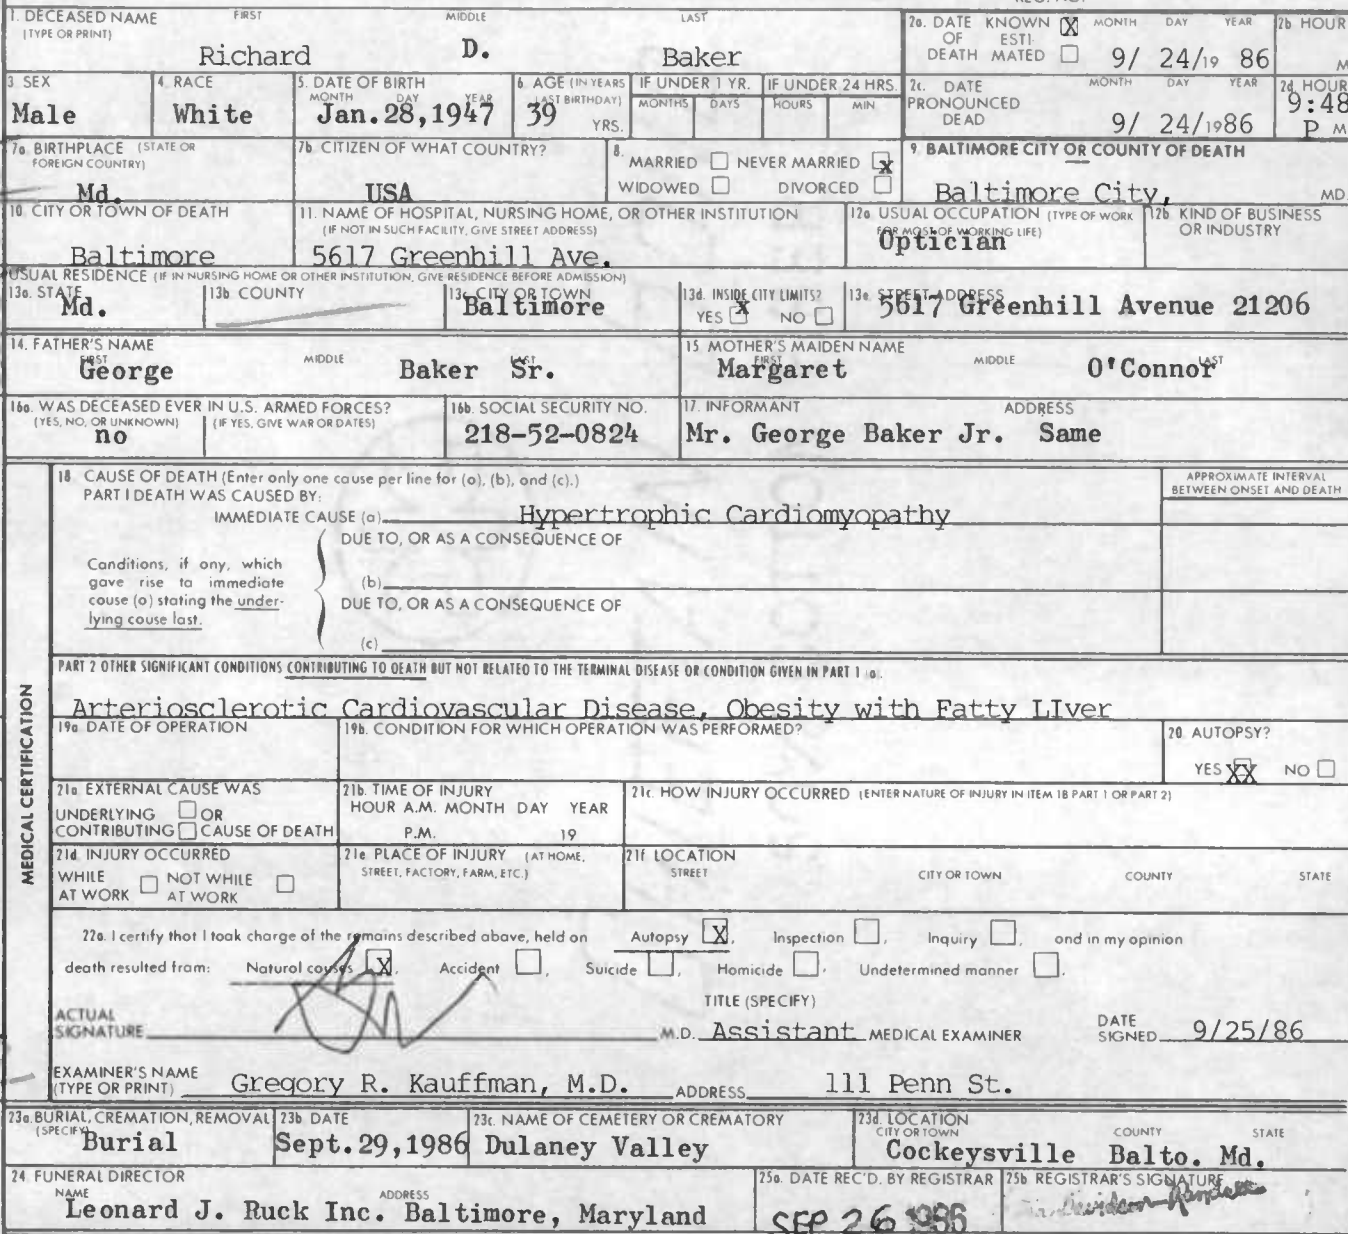 1. DECEASED NAME FIRST MIDDLE LAST
(TYPE OR PRINT)
Richard D. Baker
2a. DATE KNOWN X MONTH DAY YEAR
OF ESTI-
DEATH MATED 9/ 24/19 86
2b HOUR
M
3 SEX
Male
4. RACE
White
5. DATE OF BIRTH
MONTH DAY YEAR
Jan.28,1947
6. AGE (IN YEARS
LAST BIRTHDAY)
39 YRS.
IF UNDER 1 YR.
MONTHS DAYS
IF UNDER 24 HRS.
HOURS MIN
2c. DATE MONTH DAY YEAR
PRONOUNCED
DEAD 9/ 24/1986
2d. HOUR
9:48
P M
7a. BIRTHPLACE (STATE OR
FOREIGN COUNTRY)
Md.
7b. CITIZEN OF WHAT COUNTRY?
USA
8.
MARRIED NEVER MARRIED x
WIDOWED DIVORCED
9. BALTIMORE CITY OR COUNTY OF DEATH
Baltimore City, MD.
10. CITY OR TOWN OF DEATH
Baltimore
11. NAME OF HOSPITAL, NURSING HOME, OR OTHER INSTITUTION
(IF NOT IN SUCH FACILITY, GIVE STREET ADDRESS)
5617 Greenhill Ave.
12a. USUAL OCCUPATION (TYPE OF WORK
FOR MOST OF WORKING LIFE)
Optician
12b. KIND OF BUSINESS
OR INDUSTRY
USUAL RESIDENCE (IF IN NURSING HOME OR OTHER INSTITUTION, GIVE RESIDENCE BEFORE ADMISSION)
13a. STATE
Md.
13b. COUNTY
13c. CITY OR TOWN
Baltimore
13d. INSIDE CITY LIMITS?
YES X NO
13e. STREET ADDRESS
5617 Greenhill Avenue 21206
14. FATHER'S NAME
FIRST MIDDLE LAST
George Baker Sr.
15. MOTHER'S MAIDEN NAME
FIRST MIDDLE LAST
Margaret O'Connor
16a. WAS DECEASED EVER IN U.S. ARMED FORCES?
(YES, NO, OR UNKNOWN) (IF YES, GIVE WAR OR DATES)
no
16b. SOCIAL SECURITY NO.
218-52-0824
17. INFORMANT ADDRESS
Mr. George Baker Jr. Same
MEDICAL CERTIFICATION
18 CAUSE OF DEATH (Enter only one cause per line for (a), (b), and (c).)
PART I DEATH WAS CAUSED BY:
IMMEDIATE CAUSE (a) Hypertrophic Cardiomyopathy
APPROXIMATE INTERVAL
BETWEEN ONSET AND DEATH
DUE TO, OR AS A CONSEQUENCE OF
Conditions, if any, which
gave rise to immediate
cause (a) stating the under-
lying cause last.
(b)
DUE TO, OR AS A CONSEQUENCE OF
(c)
PART 2 OTHER SIGNIFICANT CONDITIONS CONTRIBUTING TO DEATH BUT NOT RELATED TO THE TERMINAL DISEASE OR CONDITION GIVEN IN PART 1 (a).
Arteriosclerotic Cardiovascular Disease, Obesity with Fatty LIver
19a. DATE OF OPERATION
19b. CONDITION FOR WHICH OPERATION WAS PERFORMED?
20. AUTOPSY?
YES XX NO
21a. EXTERNAL CAUSE WAS
UNDERLYING OR
CONTRIBUTING CAUSE OF DEATH
21b. TIME OF INJURY
HOUR A.M. MONTH DAY YEAR
P.M. 19
21c. HOW INJURY OCCURRED (ENTER NATURE OF INJURY IN ITEM 18 PART 1 OR PART 2)
21d. INJURY OCCURRED
WHILE NOT WHILE
AT WORK AT WORK
21e. PLACE OF INJURY (AT HOME,
STREET, FACTORY, FARM, ETC.)
21f. LOCATION
STREET CITY OR TOWN COUNTY STATE
22a. I certify that I took charge of the remains described above, held on Autopsy X, Inspection , Inquiry , and in my opinion
death resulted from: Natural causes X, Accident , Suicide , Homicide , Undetermined manner .
ACTUAL
SIGNATURE
M.D.
TITLE (SPECIFY)
Assistant MEDICAL EXAMINER
DATE
SIGNED 9/25/86
EXAMINER'S NAME
(TYPE OR PRINT) Gregory R. Kauffman, M.D. ADDRESS 111 Penn St.
23a. BURIAL, CREMATION, REMOVAL
(SPECIFY)
Burial
23b. DATE
Sept.29,1986
23c. NAME OF CEMETERY OR CREMATORY
Dulaney Valley
23d. LOCATION
CITY OR TOWN COUNTY STATE
Cockeysville Balto. Md.
24. FUNERAL DIRECTOR
NAME ADDRESS
Leonard J. Ruck Inc. Baltimore, Maryland
25a. DATE REC'D. BY REGISTRAR
SEP 26 1986
25b. REGISTRAR'S SIGNATURE